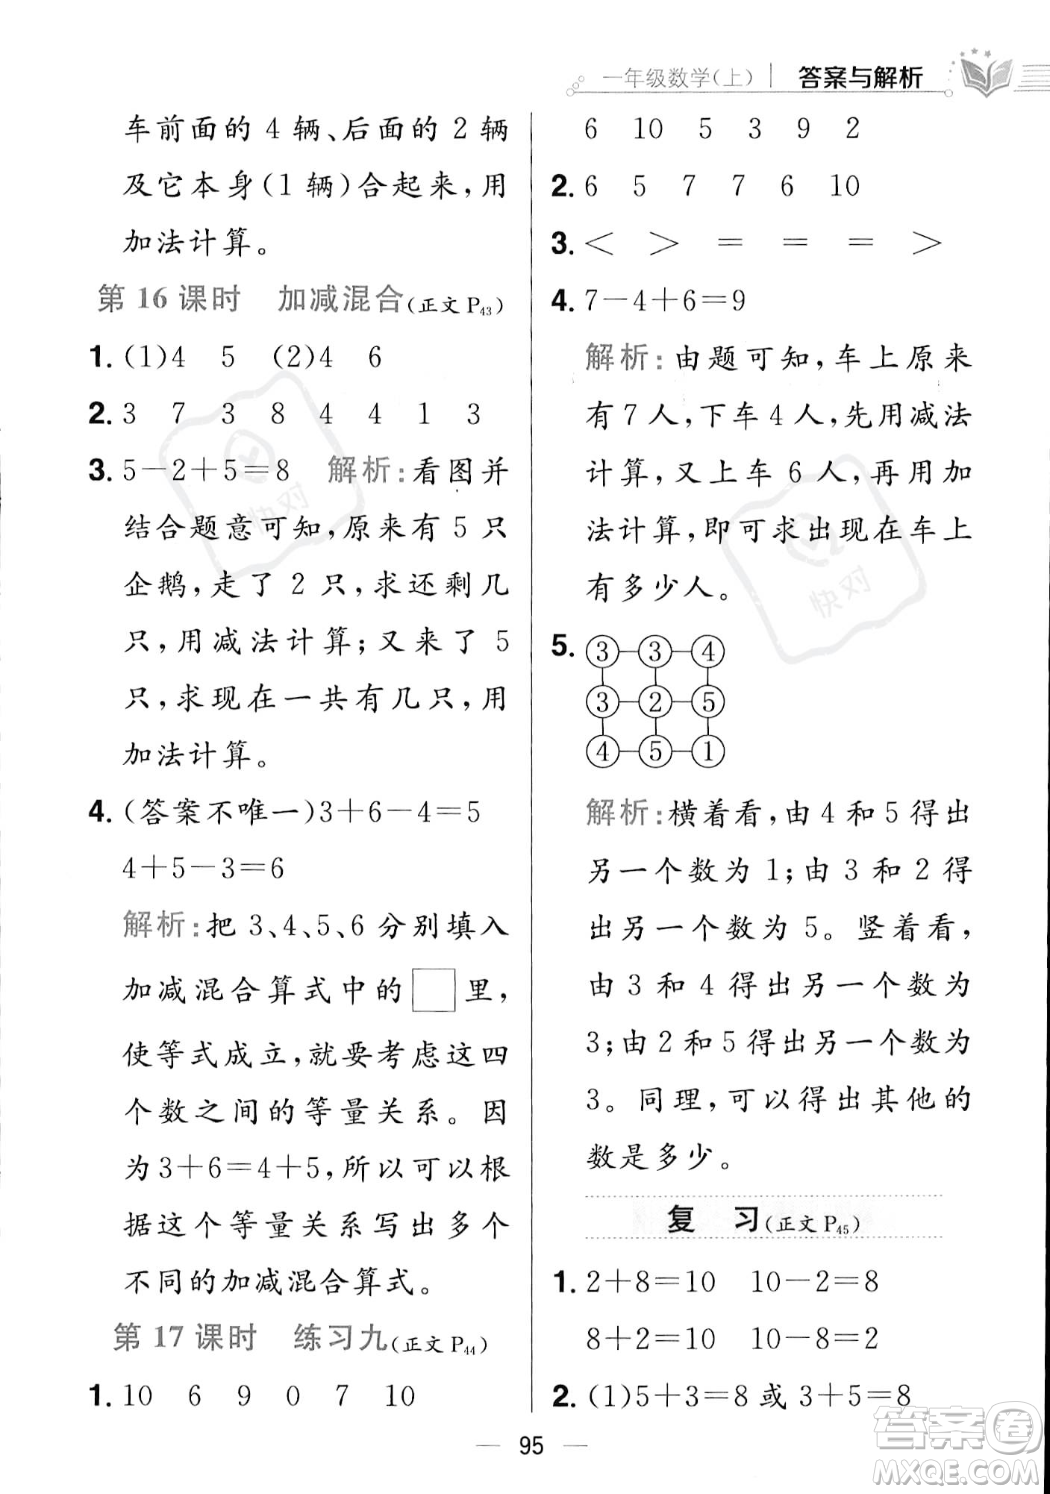 一年级数学(上) 答案与解析
车前面的 4 辆、后面的 2 辆
及它本身(1 辆)合起来,用
加法计算。
第 16 课时 加减混合(正文 P43)
1. (1)4 5 (2)4 6
2. 3 7 3 8 4 4 1 3
3. 5-2+5=8 解析:看图并
结合题意可知,原来有 5 只
企鹅,走了 2 只,求还剩几
只,用减法计算;又来了 5
只,求现在一共有几只,用
加法计算。
4. (答案不唯一)3+6-4=5
4+5-3=6
解析:把 3、4、5、6 分别填入
加减混合算式中的□里,
使等式成立,就要考虑这四
个数之间的等量关系。因
为3+6=4+5,所以可以根
据这个等量关系写出多个
不同的加减混合算式。
第 17 课时 练习九(正文 P44)
1. 10 6 9 0 7 10
6 10 5 3 9 2
2. 6 5 7 7 6 10
3. < > = = = >
4. 7-4+6=9
解析:由题可知,车上原来
有7人,下车4人,先用减法
计算,又上车 6 人,再用加
法计算,即可求出现在车上
有多少人。
5. ③ ③ ④
③ ② ⑤
④ ⑤ ①
解析:横着看,由 4 和 5 得出
另一个数为 1;由 3 和 2 得
出另一个数为 5。竖着看,
由 3 和 4 得出另一个数为
3;由 2 和 5 得出另一个数为
3。同理,可以得出其他的
数是多少。
复 习(正文 P45)
1. 2+8=10 10-2=8
8+2=10 10-8=2
2. (1)5+3=8 或 3+5=8
95
快对
快对
答案卷
MXQE.COM